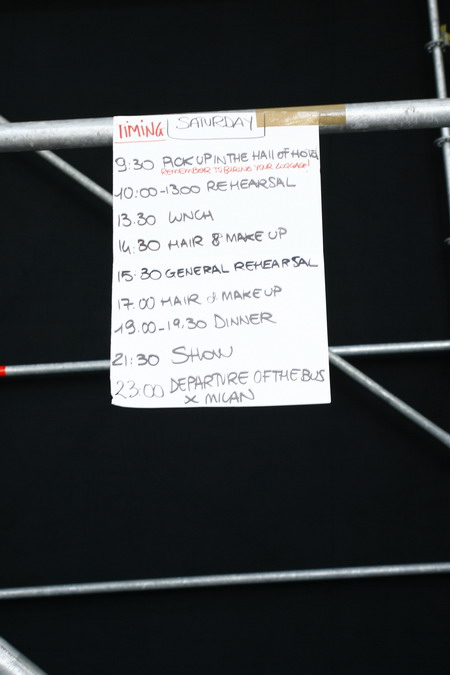 TIMING SATURDAY
9:30 PICK UP IN THE HALL OF HOTEL
REMEMBER TO BRING YOUR LUGGAGE!
10:00-1300 REHEARSAL
13.30 LUNCH
14:30 HAIR & MAKE UP
15:30 GENERAL REHEARSAL
17.00 HAIR & MAKE UP
19.00-19.30 DINNER
21:30 SHOW
23:00 DEPARTURE OF THE BUS
X MILAN